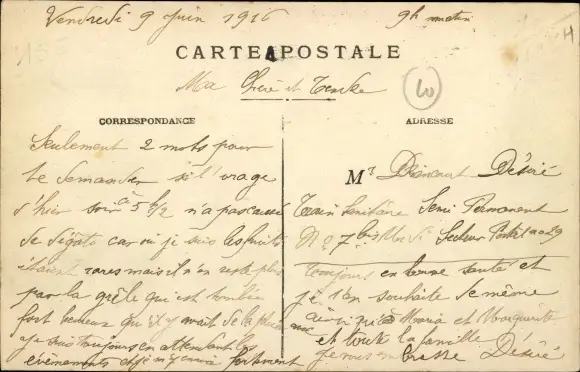 Vendredi 9 Juin 1916 9h matin
CARTE POSTALE
Ma Chère et Tendre
10
CORRESPONDANCE
ADRESSE
Seulement 2 mots pour
te demander si l'orage
d'hier soir à 5 h 1/2 n'a pas causé
de dégâts car où je suis les fruits
étaient rares mais il n'en reste plus
par la grêle qui est tombée
fort heureux qu'il y avait de la pluie
je suis toujours en attendant les
évènements et je m'y ennuie fortement
Mr Diancourt Désiré
Train Sanitaire Semi Permanent
No 7 bis Secteur Postal no 29
toujours en bonne santé et
je t'en souhaite de même
ainsi qu'à Maria et Marguerite
et toute la famille
je vous embrasse Désiré